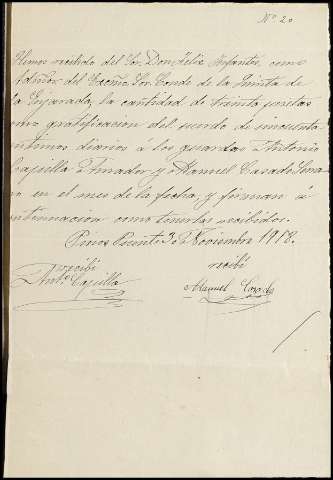 Nº 20
Hemos recibido del Sor. Don Felix Infantes, como
Admor. del Excmo. Sor. Conde de la Quinta de
la Enjarada, la cantidad de treinta pesetas
como gratificacion del sueldo de cincuenta
centimos diarios a los guardas Antonio
Capilla Amador y Manuel Casado Serra
no en el mes de la fecha, y firman á
continuacion como tenerlas recibidas.
Pinos Puente 30 Noviembre 1918.
recibi recibi
Antº Capilla Manuel Casado